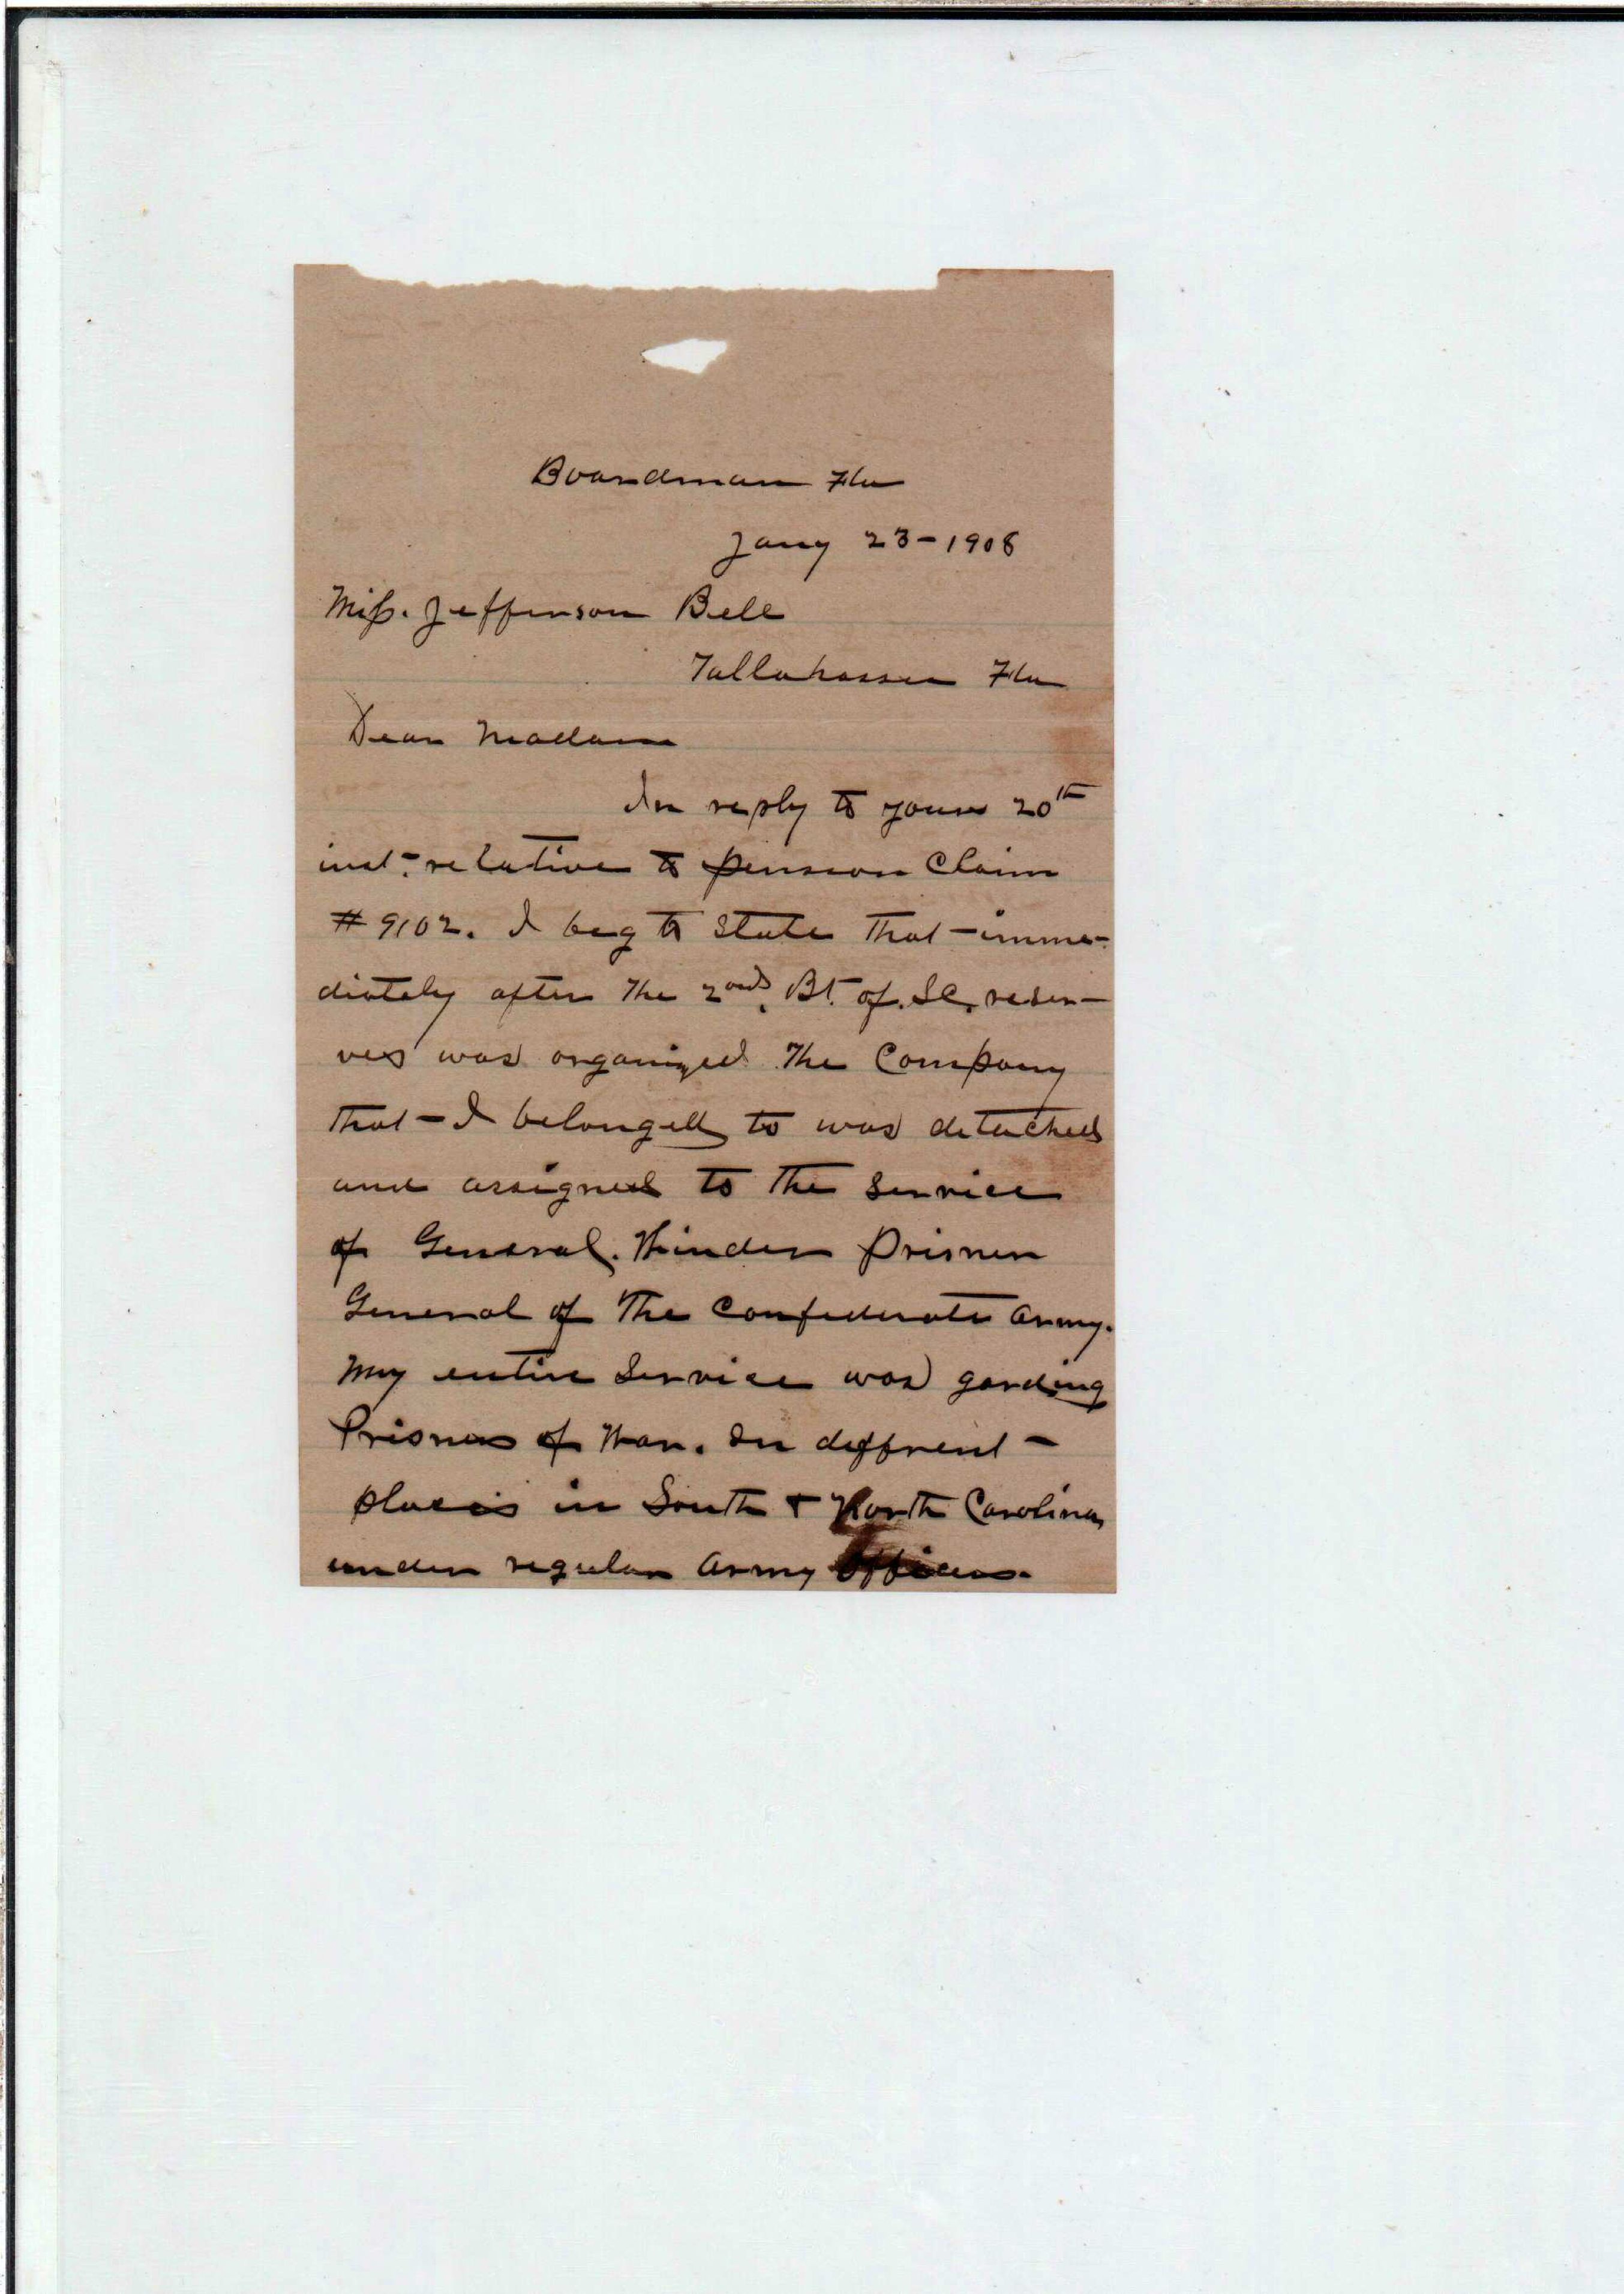 Boardman Fla
Jany 23-1908
Miss. Jefferson Bell
Tallahassee Fla
Dear Madam
In reply to yours 20th
inst- relative to pension Claim
#9102. I beg to State that - imme-
diately after the 2nd. Bt. of. SC. reser-
ves was organized The Company
that - I belonged to was detached
and assigned to the Service
of General. Winder Prisner
General of The Confederate Army.
My entire Service was garding
Prisners of War. In diffrent -
places in South & North Carolina
under regular Army Officers.